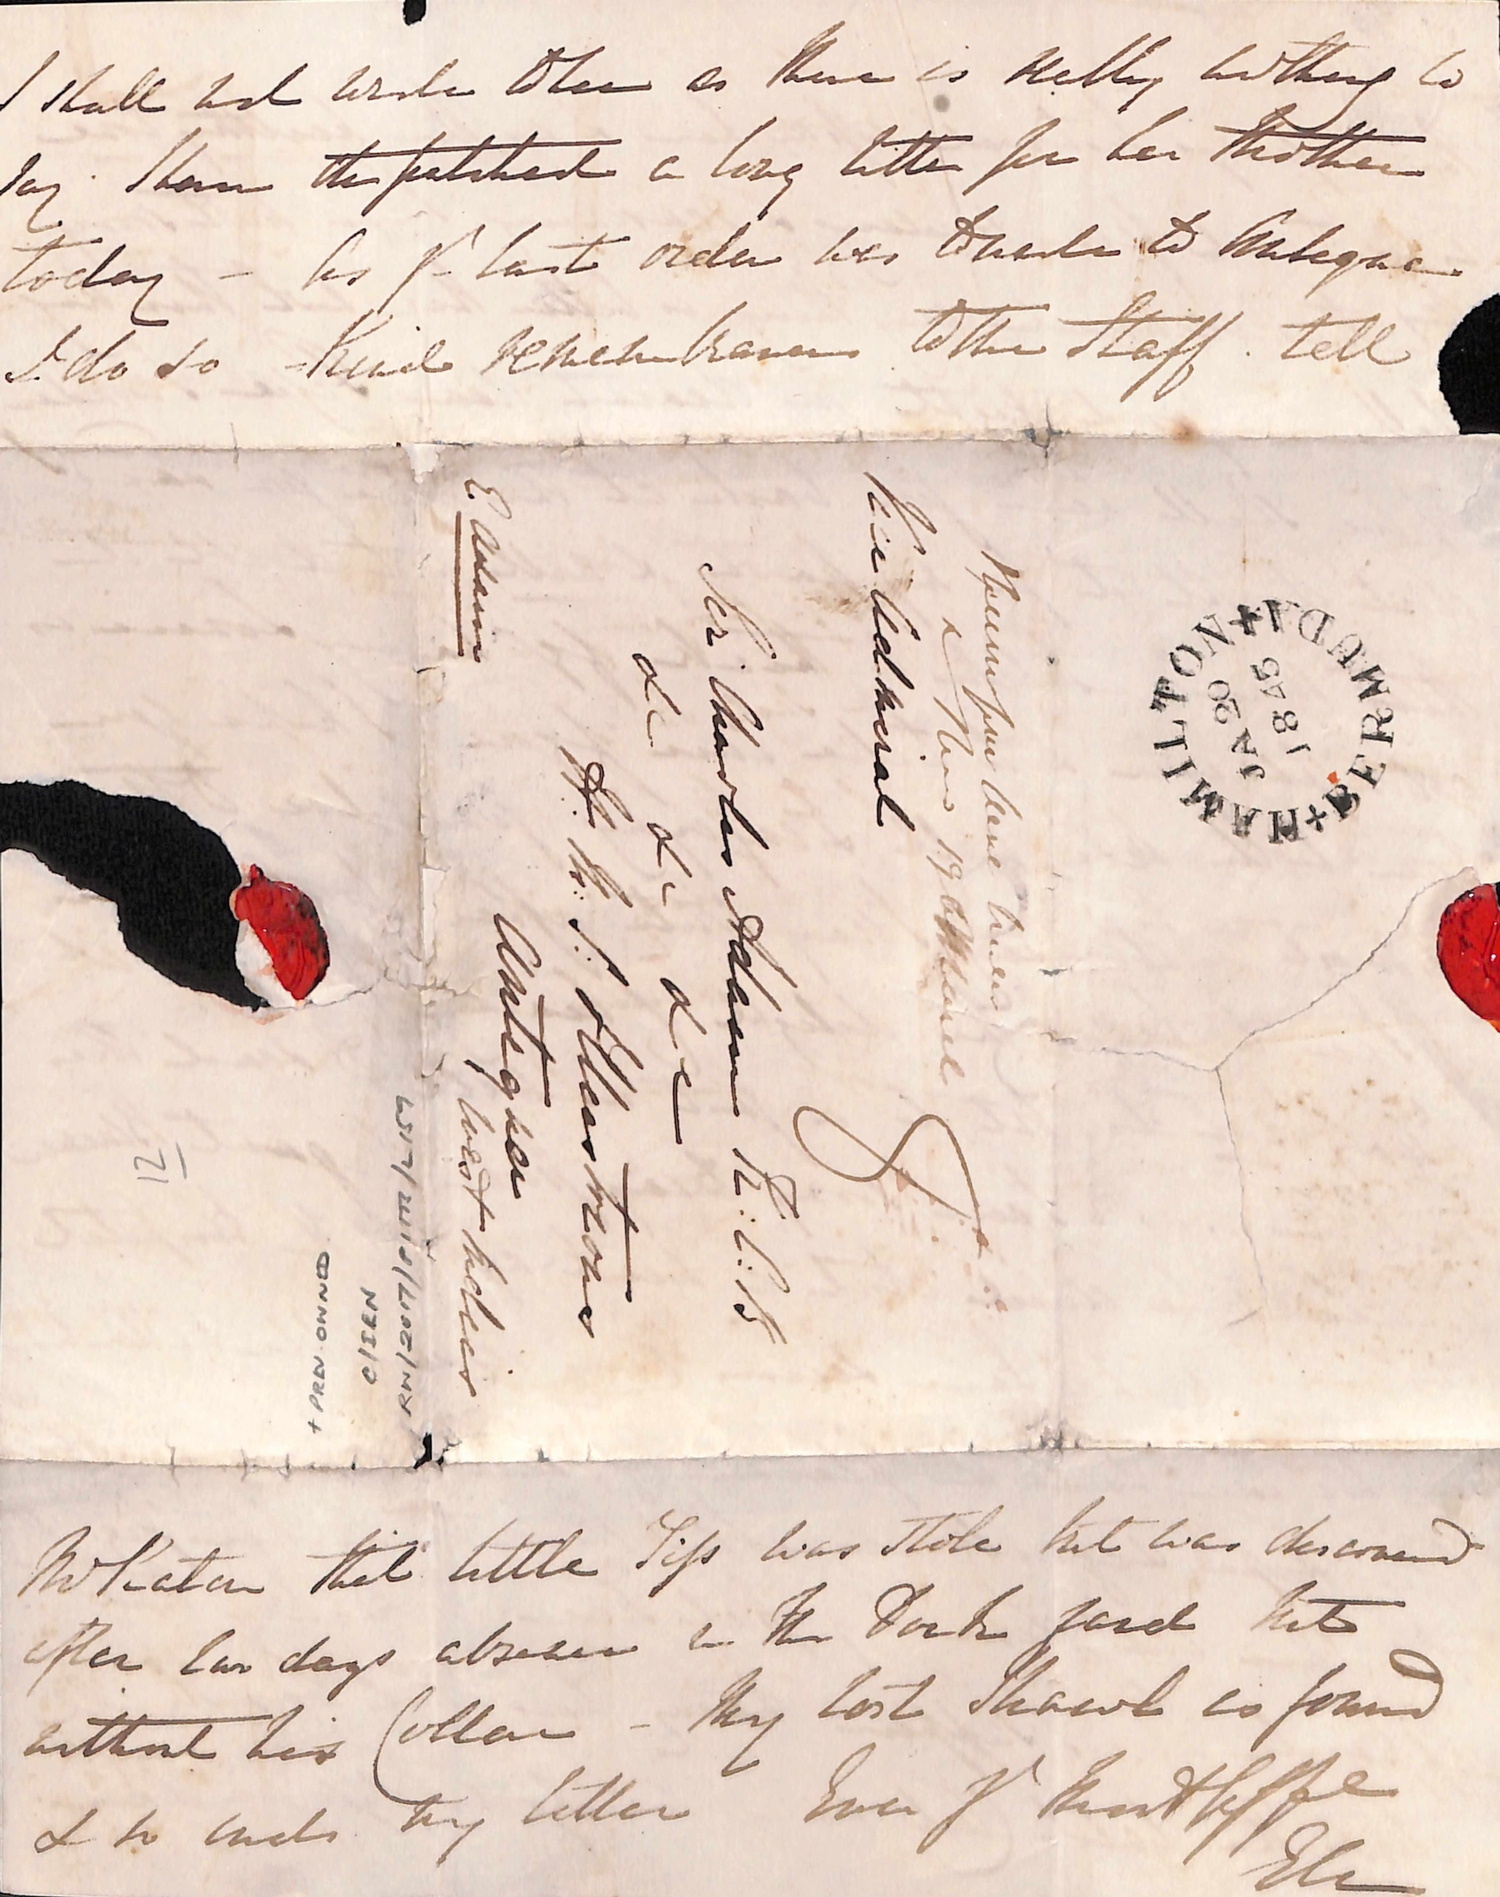 I shall not write to her as there is really nothing to
say. I have despatched a long letter for her Brother
today - As yr last order was to write to Antigua
I do so - Kind remembrances to the Staff. tell
Vice Admiral
Sir Charles Adam K.C.B
&c &c &c
H. M. S. Illustrious
Antigua
West Indies
E. Adam
HAMILTON
BERMUDA
JA 20
1845
that little Tip was stole but was discovered
after two days absence in the Dock yard but
without his Collar - My lost Shawl is found
& so ends my letter Ever yr most affte